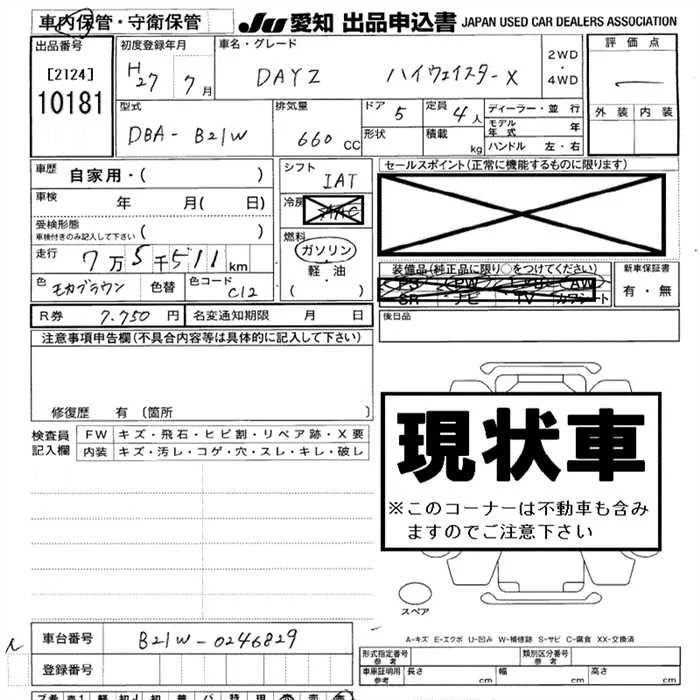 車内保管・守衛保管
JU 愛知 出品申込書 JAPAN USED CAR DEALERS ASSOCIATION
出品番号
[2124]
10181
初度登録年月
H27 7月
車名・グレード
DAYZ ハイウェイスターX
2WD
・
4WD
評価点
外装 内装
型式
DBA-B21W
排気量
660 CC
ドア 5
形状
定員 4人
積載 kg
ディーラー・並行
モデル年式 年
ハンドル 左・右
車歴 自家用・( )
車検 年 月( 日)
受検形態
車検付きのみ記入して下さい ( )
走行 7万5千511km
色 モカブラウン 色替 色コード C12
シフト
IAT
冷房
AAC
燃料
ガソリン
軽油
( ・ )
セールスポイント(正常に機能するものに限ります)
装備品(純正品に限り○をつけてください)
PS PW AW
SR ナビ TV カワシート
新車保証書
有・無
R券 7.750円 名変通知期限 月 日
後日品
注意事項申告欄(不具合内容等は具体的に記入して下さい)
修復歴 有(箇所 )
検査員
記入欄
FW キズ・飛石・ヒビ割・リペア跡・X要
内装 キズ・汚レ・コゲ・穴・スレ・キレ・破レ
現状車
※このコーナーは不動車も含み
ますのでご注意下さい
スペア
A-キズ E-エクボ U-凹み W-補修跡 S-サビ C-腐食 XX-交換済
車台番号 B21W-0246829
登録番号
形式指定番号
参考
類別区分番号
参考
車庫証明用
参考
長さ cm 幅 cm 高さ cm